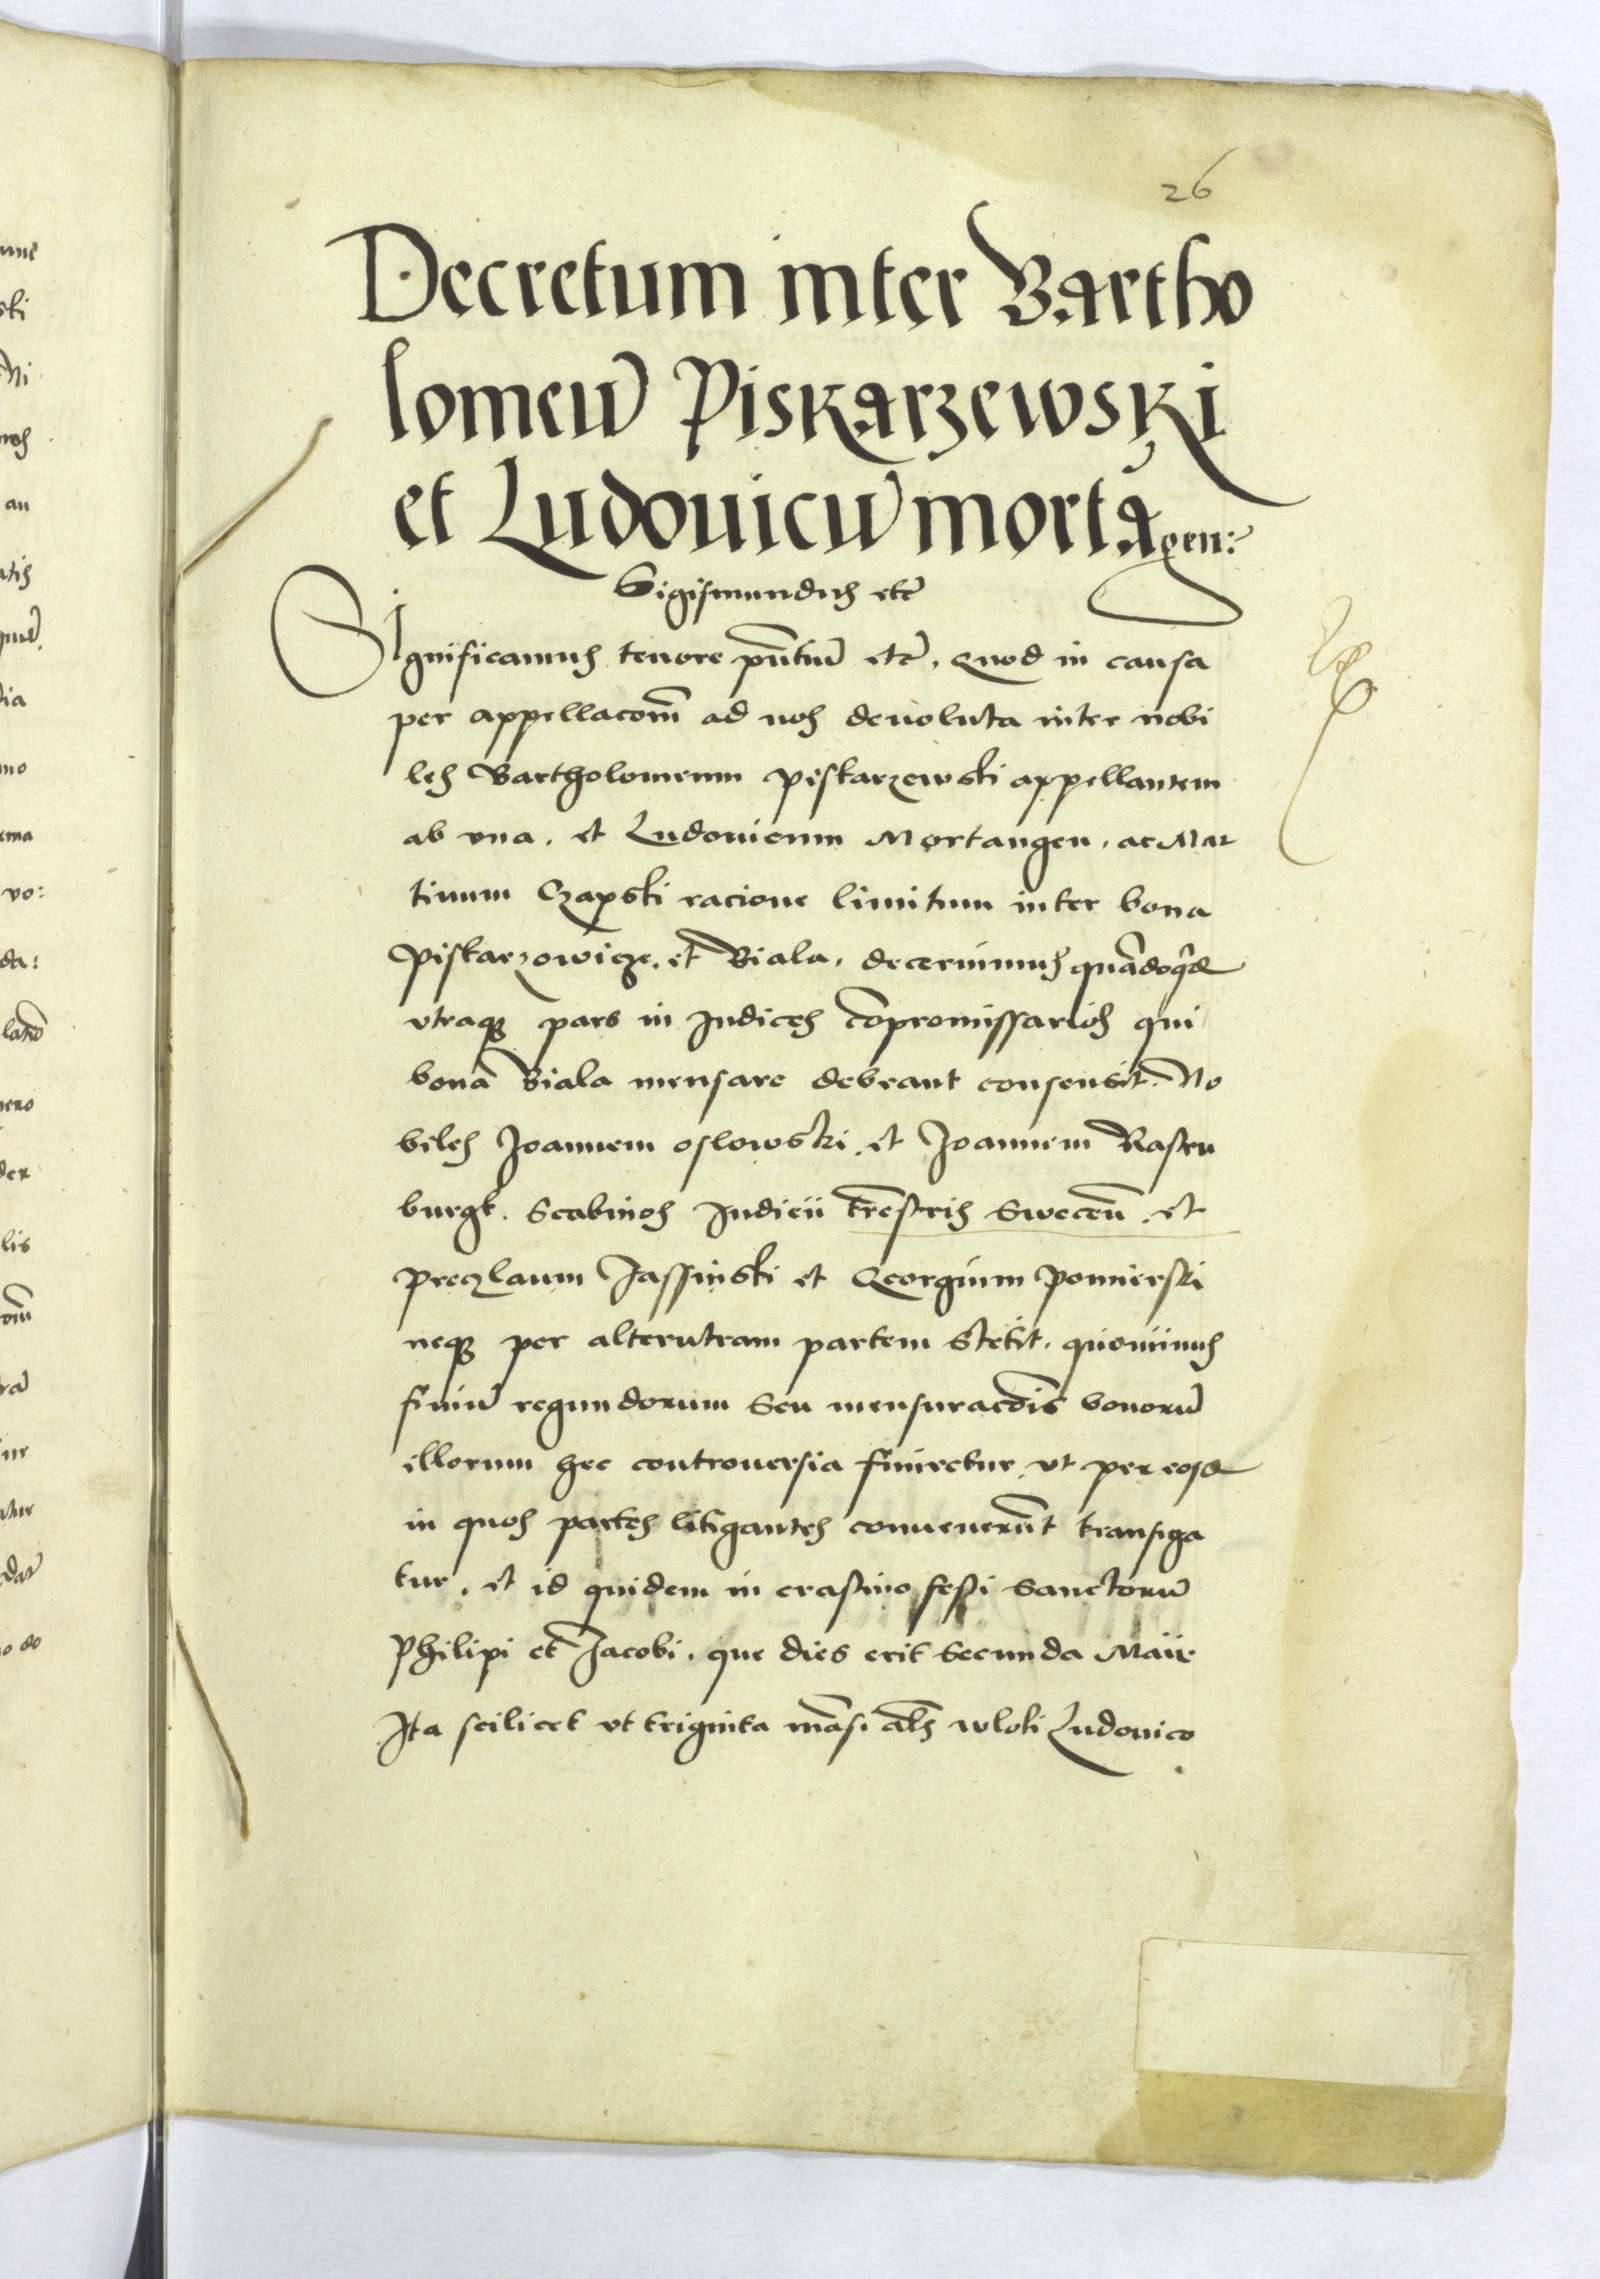 26
Decretum inter Bartho
lomeū Piskarzewski
et Ludouicū mortagen:
Sigismundus etc̄
Significamus tenore pn̄tiū etc̄, quod in causa
per appellacom̄ ad nos deuoluta inter nobi
les Bartholomeum piskarzewski appellantem
ab vna, et Ludouicum Mortangen, ac Mar
tinum Czapski racione limitum inter bona
Piskarzowicze, et Biala, decernimus quādoqđ
vtraqꝫ pars in Judices cōpromissarios qui
bona Biala mensare debeant consensit. No
biles Joannem oslowski, et Joannem Rastem
burgk, Scabinos Judicii trēstris Swecen̄, et
preczlaum Jassinski et Georgium pomierski
neqꝫ per alterutram partem stetit, quominus
finiū regundorum seu mensuracōis bonorū
illorum hec controuersia finiretur, vt per eosđ
in quos partes litigantes conuenerūt transiga
tur, et id quidem in crastino festi Sanctorū
Philipi et Jacobi, que dies erit secunda Maii
Jta scilicet vt triginta māsi al̄s wloki Ludouico